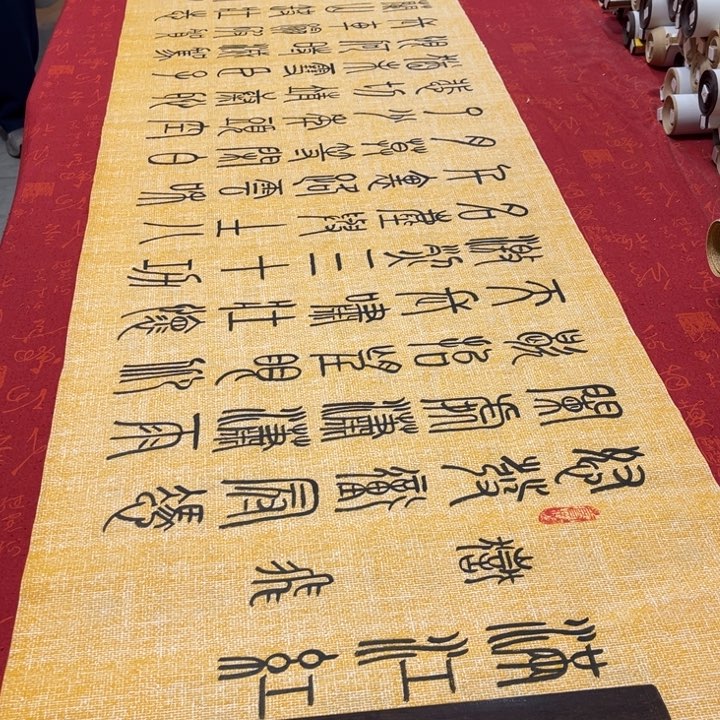 滿江紅
嶽飛
怒髮衝冠憑
闌處瀟瀟雨
歇擡望眼仰
天長嘯壯懷
激烈三十功
名塵與土八
千里路雲和
月莫等閒白
了少年頭空
悲切靖康恥
猶未雪臣子
恨何時滅駕
長車踏破賀
蘭山缺壯志